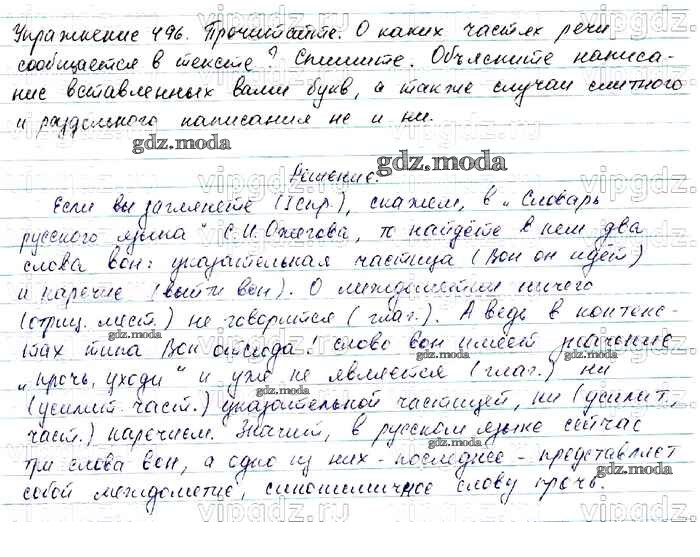 Упражнение 496. Прочитайте. О каких частях речи
сообщается в тексте? Спишите. Объясните написа-
ние вставленных вами букв, а также случаи слитного
и раздельного написания не и ни.
gdz.moda
gdz.moda
Решение.
Если вы заглянете (I спр.), скажем, в „Словарь
русского языка" С.И. Ожегова, то найдёте в нем два
слова вон: указательная частица (Вон он идёт)
и наречие (выйти вон). О междометии ничего
(отриц. мест.) не говорится (глаг.). А ведь в контекс-
тах типа Вон отсюда! слово вон имеет значение
„прочь, уходи" и уже не является (глаг.) ни
(усилит. част.) указательной частицей, ни (усилит.
част.) наречием. Значит, в русском языке сейчас
три слова вон, а одно из них - последнее - представляет
собой междометие, синонимичное слову прочь.